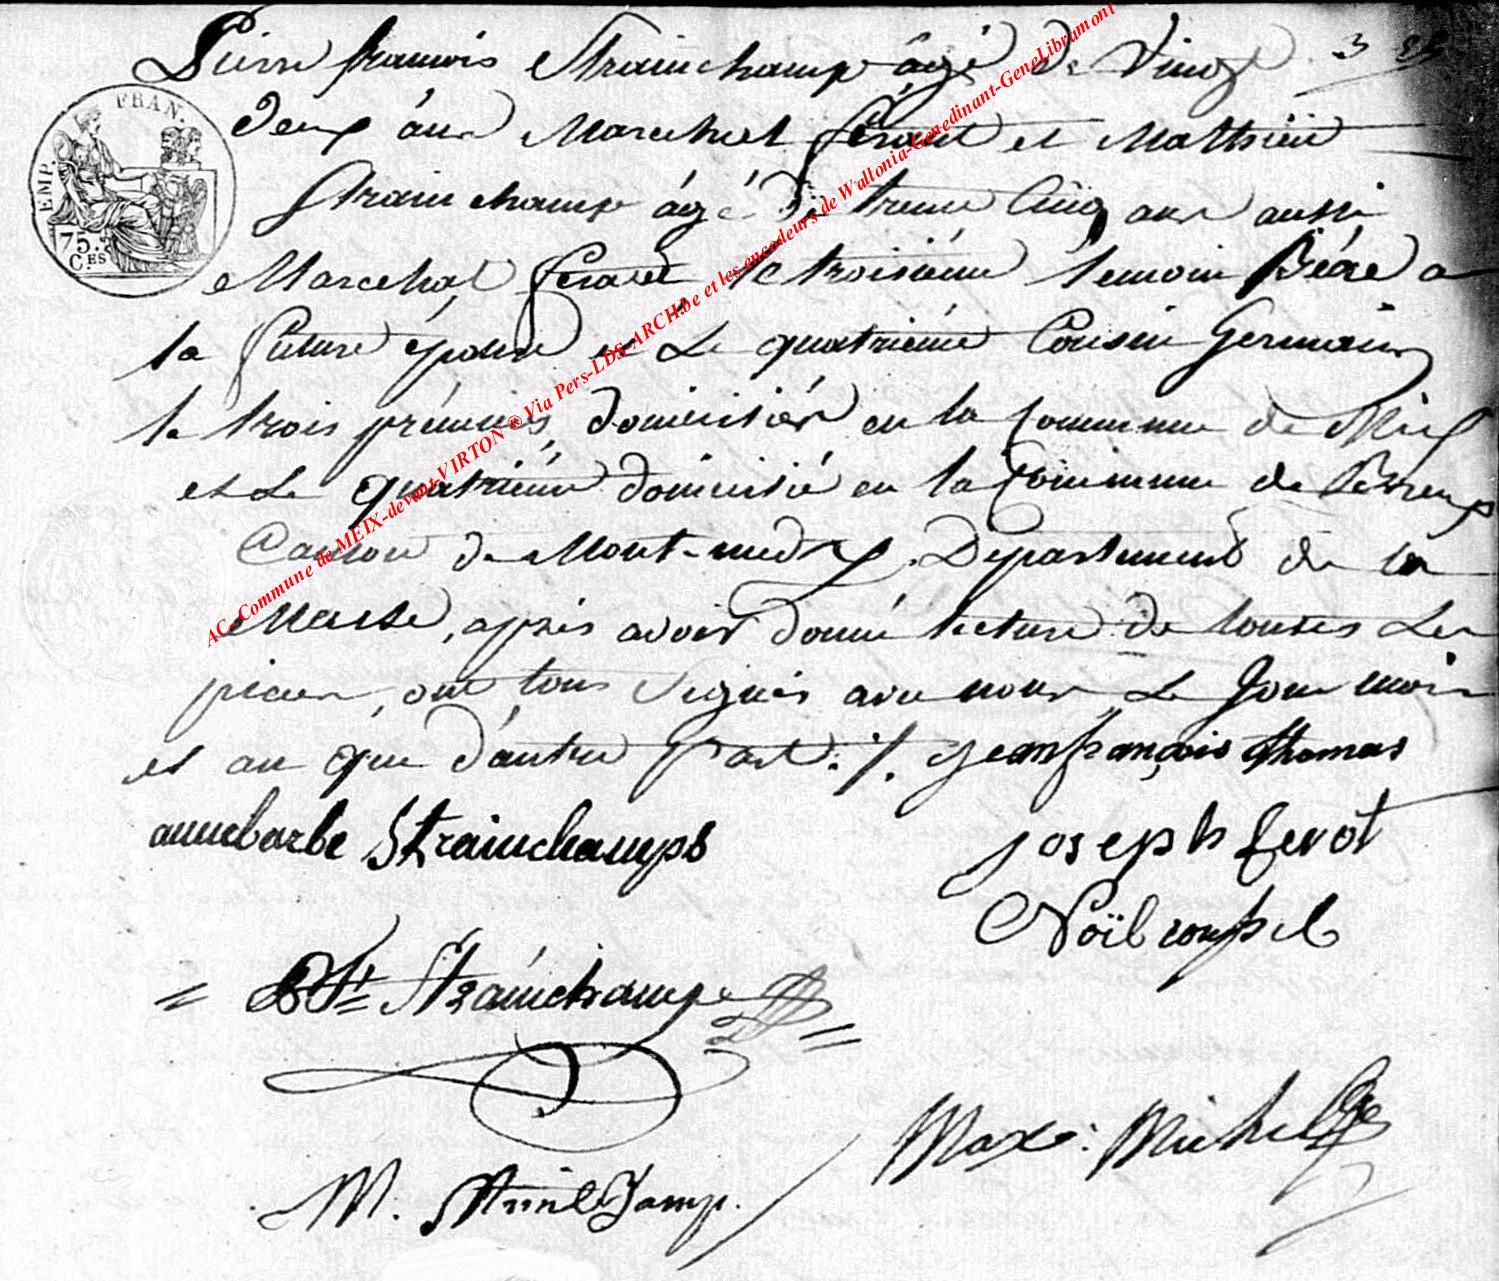 Pierre francois Strainchamps âgé de Vingt
deux âns Marechal ferant et Mathieu
Strainchamps âgé de trente Cinq ans aussi
Marechal ferant le troisiéme temoin frére a
la future épouse et Le quatriéme Cousin Germain
le trois prémiers domiciliés en la Commune de Meix
et Le quatriéme domicilié en la Commune de
Canton de Mont-medy, Departement de la
Meuse, après avoir donné lecture de toutes Les
pieces, ont tous signés avec nous Le Jour mois
et an que d'autre Part ./. jean françois thomas
anne barbe Strainchamps
joseph fevot
Noël
Bte Strainchamps
Max: Michel
M.
FRAN.
EMP.
75.
C.ES
AC-Commune de MEIX-devant-VIRTON ® Via Pers-LDS-ARCH.be et les encodeurs de Wallonia-Genedinant-GeneLibramont